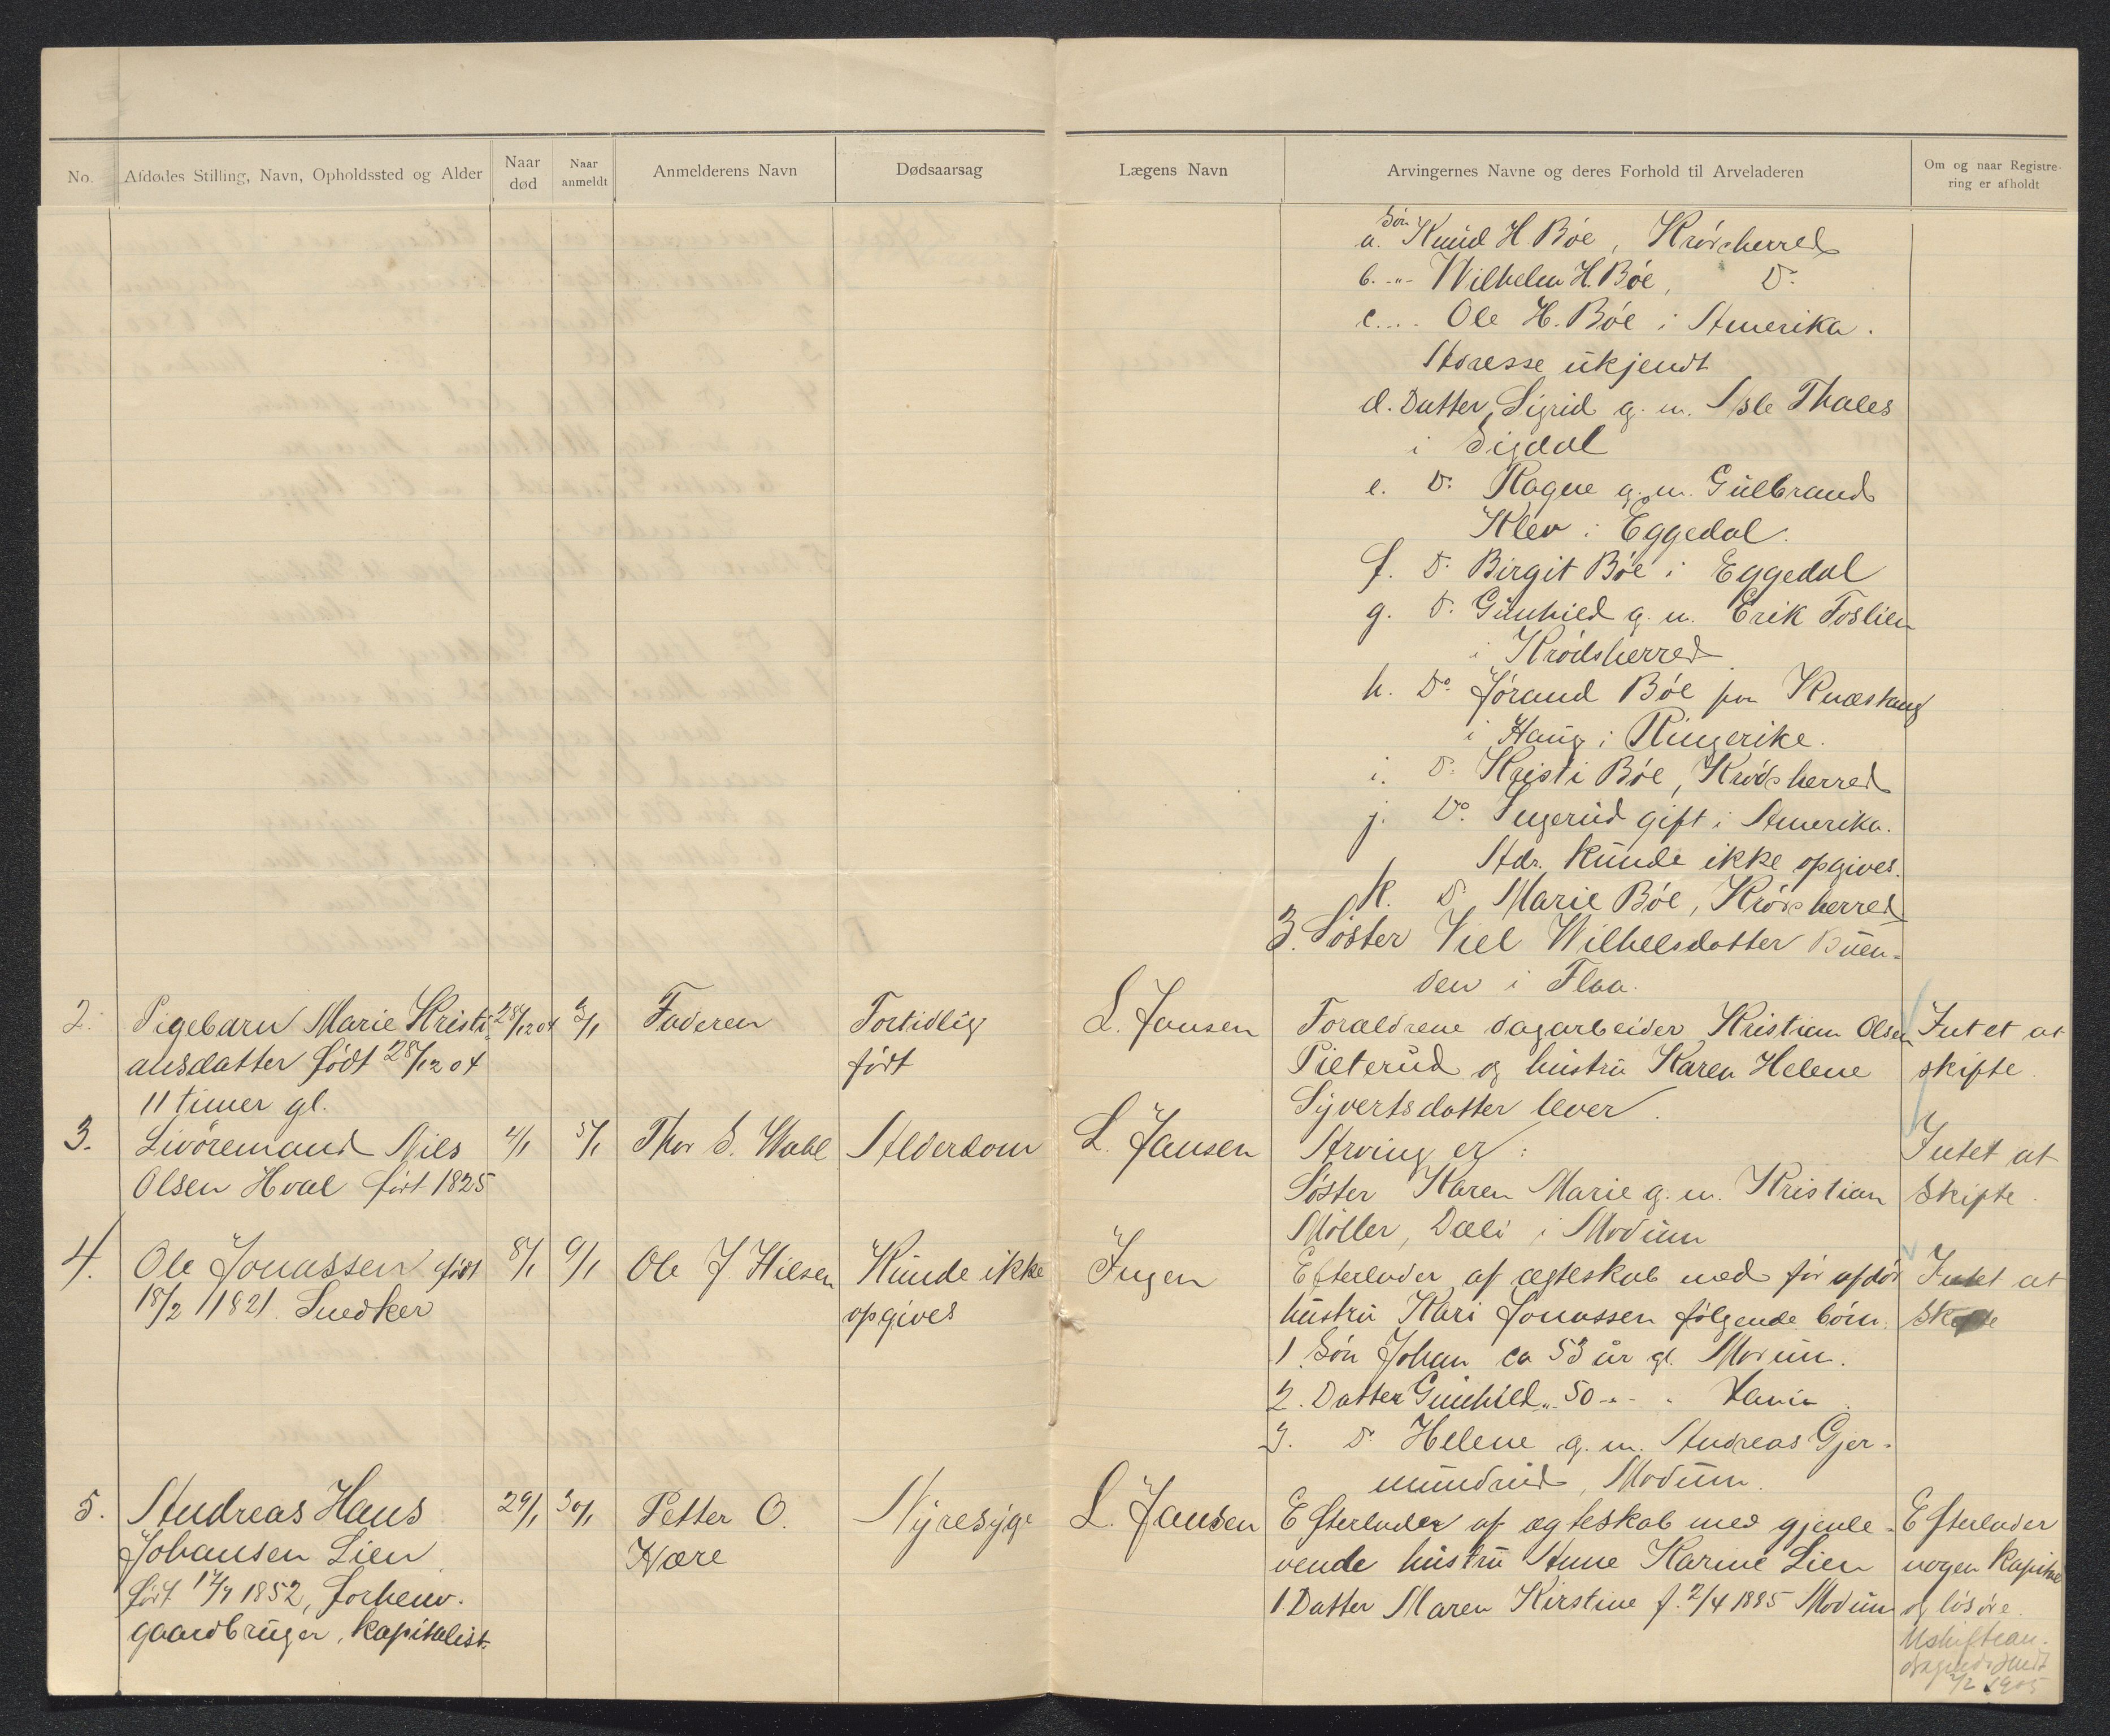 No.
Afdødes Stilling, Navn, Opholdssted og Alder
Naar død
Naar anmeldt
Anmelderens Navn
Dødsaarsag
Lægens Navn
Arvingernes Navne og deres Forhold til Arveladeren
Om og naar Registre-
ring er afholdt
a. Søn Knud H Bøe, Krødsherred
b. -"- Wilhelm H. Bøe, Do
c. .. . Ole H. Bøe i Amerika.
Adresse ukjendt
d. Datter, Sigrid g. m. Asle Thales
i Sigdal
e. Do Ragne g. m. Gulbrand
Klev i Eggedal.
f. Do Birgit Bøe i Eggedal
g. Do Gunhild g. m. Erik Foslien
i Krødsherred
h. Do Jørand Bøe paa Knæstang
i Haug i Ringerike.
i. Do Kristi Bøe, Krødsherred
j. Do Ingerid gift i Amerika.
Adr. kunde ikke opgives.
k. Do Marie Bøe, Krødsherred
3. Søster Viel Wilhelsdatter Buen-
den i Flaa.
2. Pigebarn Marie Kristi- 28/12 04 3/1 Faderen Fortidlig L. Jansen Forældrene dagarbeider Kristian Olsen Intet at
ansdatter født 28/12 04 født Pieterud og hustru Karen Helene skifte.
11 timer gl. Syvertsdatter lever.
3. Livøremand Nils 4/1 5/1 Thor S. Alderdom L. Jansen Arving er: Intet at
Olsen Hval født 1825 Søster Karen Marie g. m. Kristian Skifte.
Møller, Dæli i Modum
4. Ole Jonassen født 8/1 9/1 Ole J Hilsen Kunde ikke Ingen Efterlader af ægteskab med før afdød Intet at
18/2 1821. Snedker opgives hustru Kari Jonassen følgende børn: Skifte
1. Søn Johan ca 53 år gl. Modum.
2. Datter Gunhild " 50 -"- "
3. Do Helene g. m. Andreas Gjer-
mundrud, Modum.
5. Andreas Hans 29/1 30/1 Petter O. Nyresyge L. Jansen Efterlader af ægteskab med gjenle- Efterlader
Johansen Lien Nære vende hustru Anne Karine Lien nogen kapital
født 17/7 1852, forhenv. 1 Datter Maren Kirstine f. 2/4 1885 Modum og løsøre.
gaardbruger, kapitalist.
Uskiftean-
dragende sendt
2/2 1905